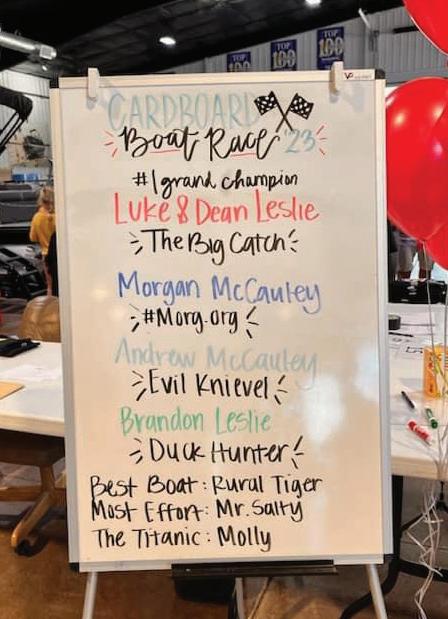 TOP
100
TOP
100
TOP
100
VP
CARDBOARD
Boat Race '23
#1 grand champion
Luke & Dean Leslie
The Big Catch
Morgan McCauley
#Morg.org
Andrew McCauley
Evil Knievel
Brandon Leslie
Duck Hunter
Best Boat: Rural Tiger
Most Effort: Mr. Salty
The Titanic: Molly